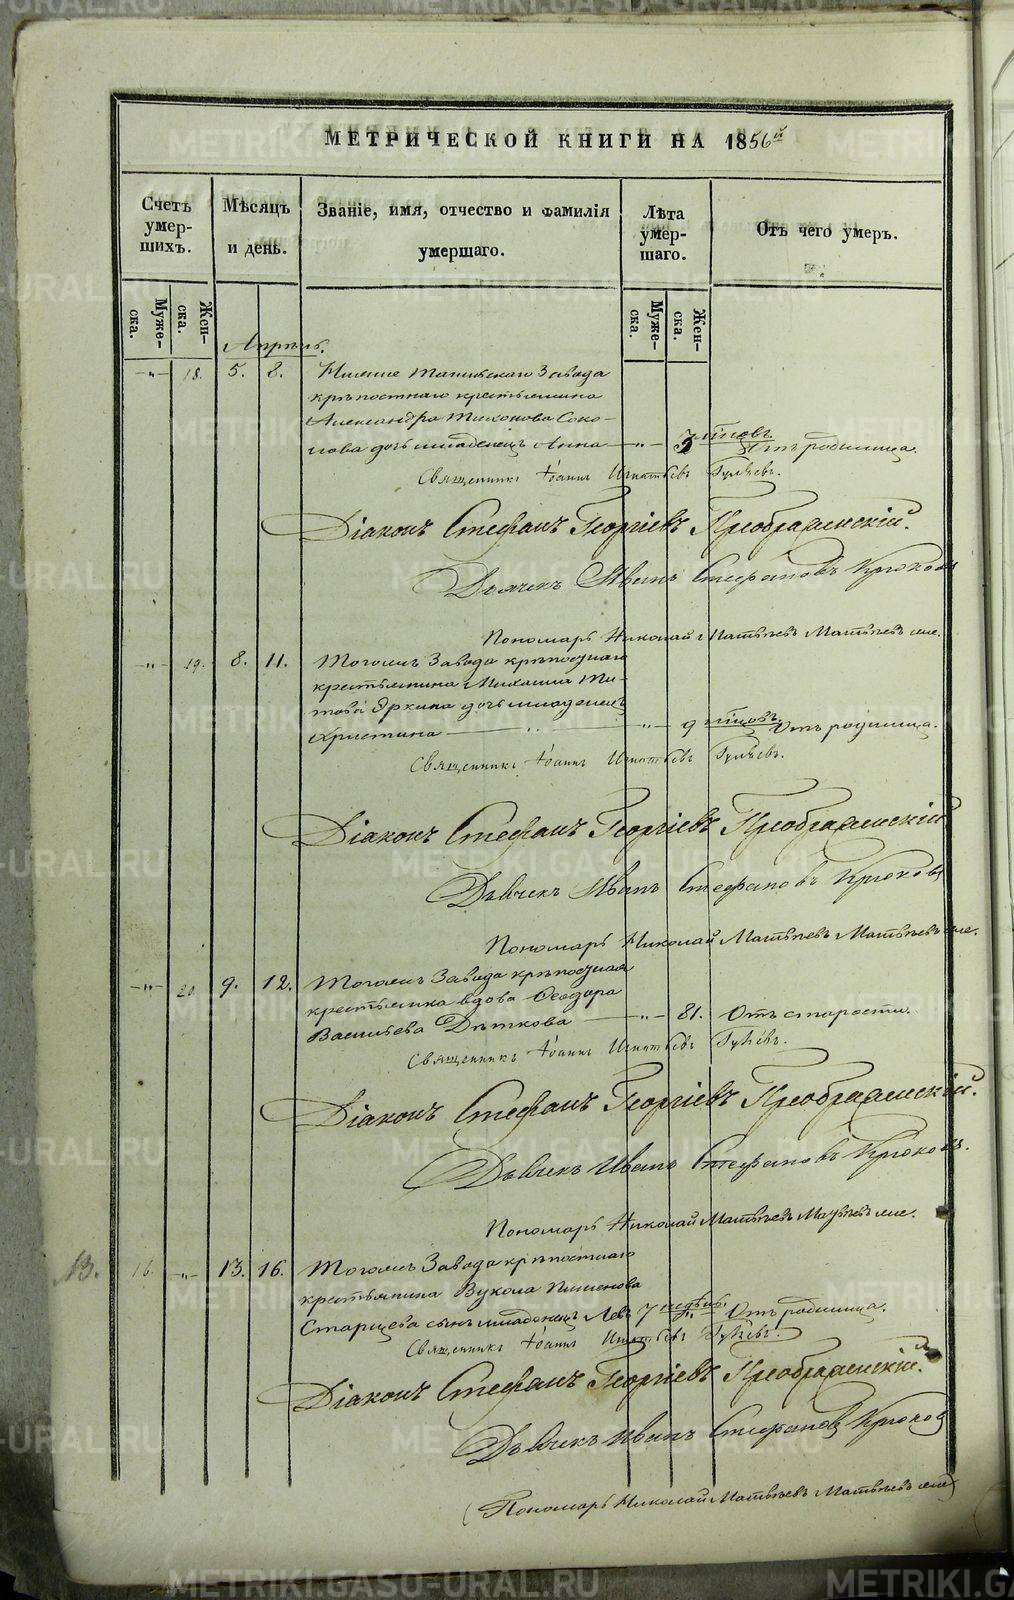 МЕТРИЧЕСКОЙ КНИГИ НА 1856й
Счетъ умер-шихъ.
Мѣсяцъ и день.
Званіе, имя, отчество и фамилія умершаго.
Лѣта умер-шаго.
Отъ чего умеръ.
Муже-ска.
Жен-ска.
Муже-ска.
Жен-ска.
Апрѣль.
-„- 18. 5. 8. Завода
крѣпостнаго крестьянина
Александра Тихонова Соко-
лова дочь младенецъ Анна -„- 3 Отъ родимца.
Священникъ Іоаннъ Игнатьевъ
Діаконъ Стефанъ Георгіевъ Преображенскій.
Дьячекъ Иванъ Стефановъ Крюковъ
Пономарь Николай Матвѣевъ
-„- 19. 8. 11. Тогожъ Завода крѣпостнаго
крестьянина Михаила Ти-
това дочь младенецъ
Христина -„- 9 Отъ родимца.
Священникъ Іоаннъ Игнатьевъ
Діаконъ Стефанъ Георгіевъ Преображенскій
Дьячекъ Иванъ Стефановъ Крюковъ
Пономарь Николай Матвѣевъ
-„- 20. 9. 12. Тогожъ Завода крѣпостная
крестьянка вдова Ѳеодора
Васильева Дѣткова -„- 81. Отъ старости.
Священникъ Іоаннъ Игнатьевъ
Діаконъ Стефанъ Георгіевъ Преображенскій.
Дьячекъ Иванъ Стефановъ Крюковъ.
Пономарь Николай Матвѣевъ
13. 16. -„- 13. 16. Тогожъ Завода крѣпостнаго
крестьянина Вукола Пименова
Старцева сынъ младенецъ Левъ 7 недѣль. -„- Отъ родимца.
Священникъ Іоаннъ Игнатьевъ
Діаконъ Стефанъ Георгіевъ Преображенскій.
Дьячекъ Иванъ Стефановъ Крюковъ
Пономарь Николай Матвѣевъ
METRIKI.GASO-URAL.RU